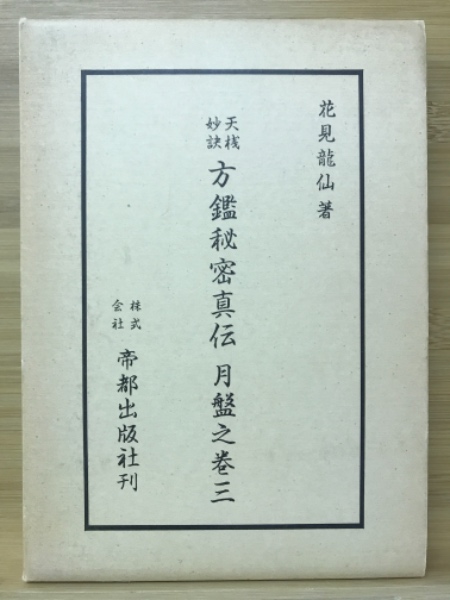 花見龍仙著
天機妙訣 方鑑秘密真伝 月盤之巻三
株式会社 帝都出版社刊